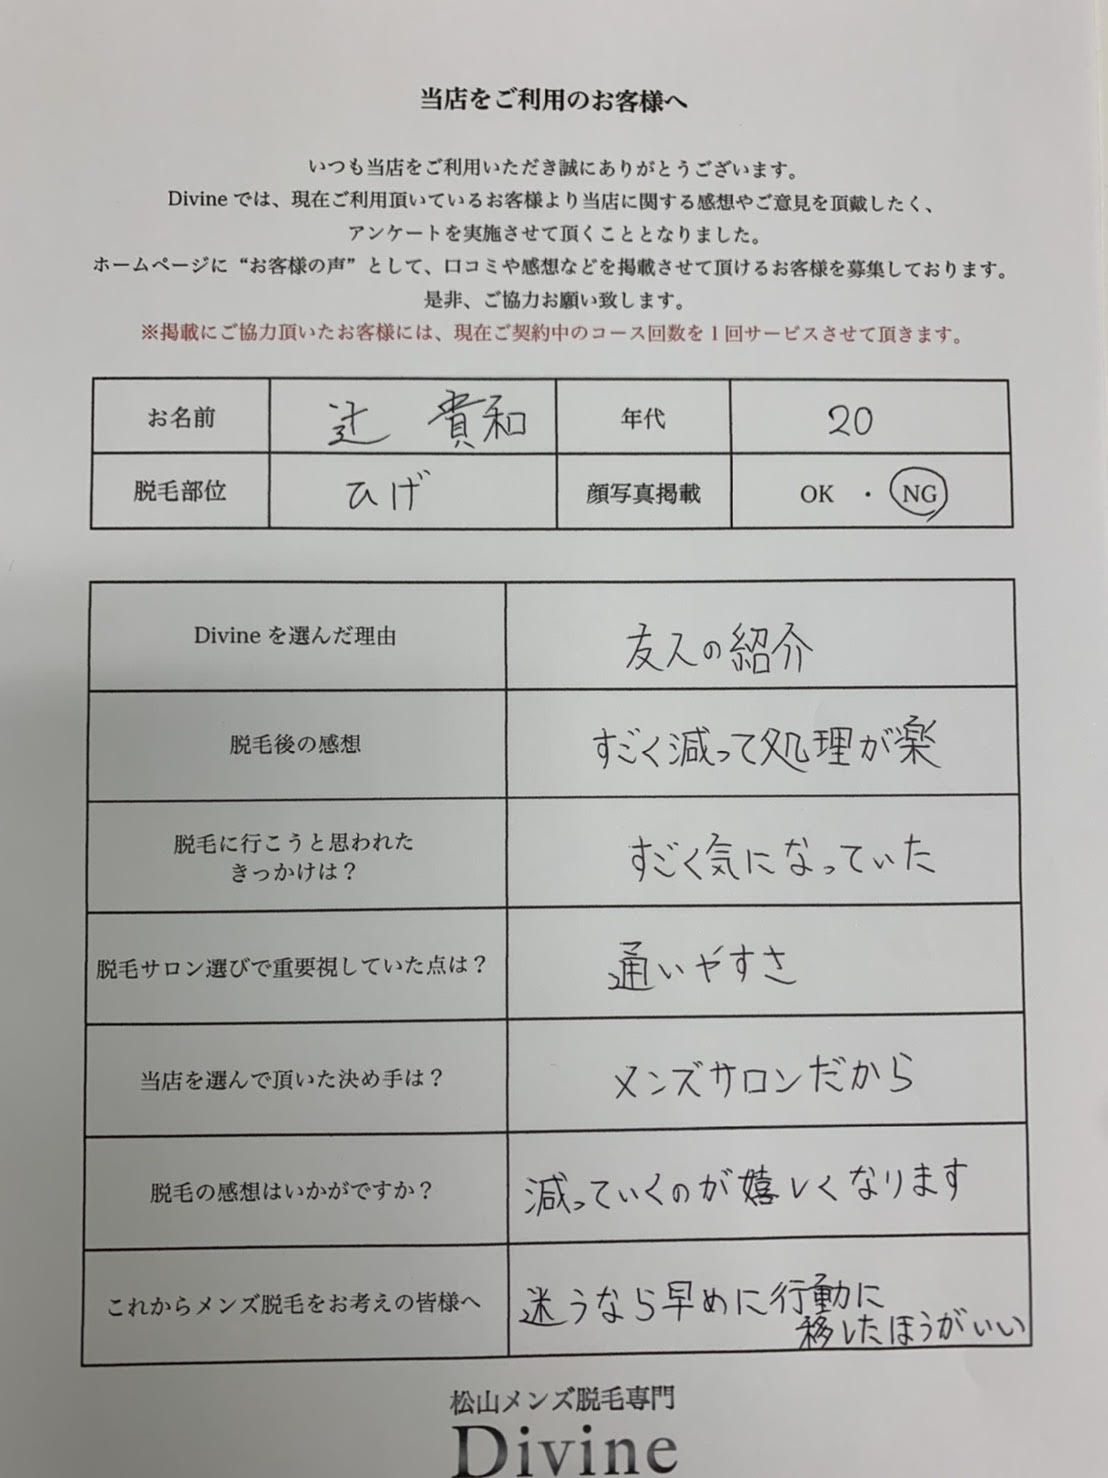 当店をご利用のお客様へ
いつも当店をご利用いただき誠にありがとうございます。
Divineでは、現在ご利用頂いているお客様より当店に関する感想やご意見を頂戴したく、
アンケートを実施させて頂くこととなりました。
ホームページに“お客様の声”として、口コミや感想などを掲載させて頂けるお客様を募集しております。
是非、ご協力お願い致します。
※掲載にご協力頂いたお客様には、現在ご契約中のコース回数を1回サービスさせて頂きます。
お名前 辻 貴和 年代 20
脱毛部位 ひげ 顔写真掲載 OK ・ NG
Divineを選んだ理由 友人の紹介
脱毛後の感想 すごく減って処理が楽
脱毛に行こうと思われた
きっかけは？ すごく気になっていた
脱毛サロン選びで重要視していた点は？ 通いやすさ
当店を選んで頂いた決め手は？ メンズサロンだから
脱毛の感想はいかがですか？ 減っていくのが嬉しくなります
これからメンズ脱毛をお考えの皆様へ 迷うなら早めに行動に
移したほうがいい
松山メンズ脱毛専門
Divine